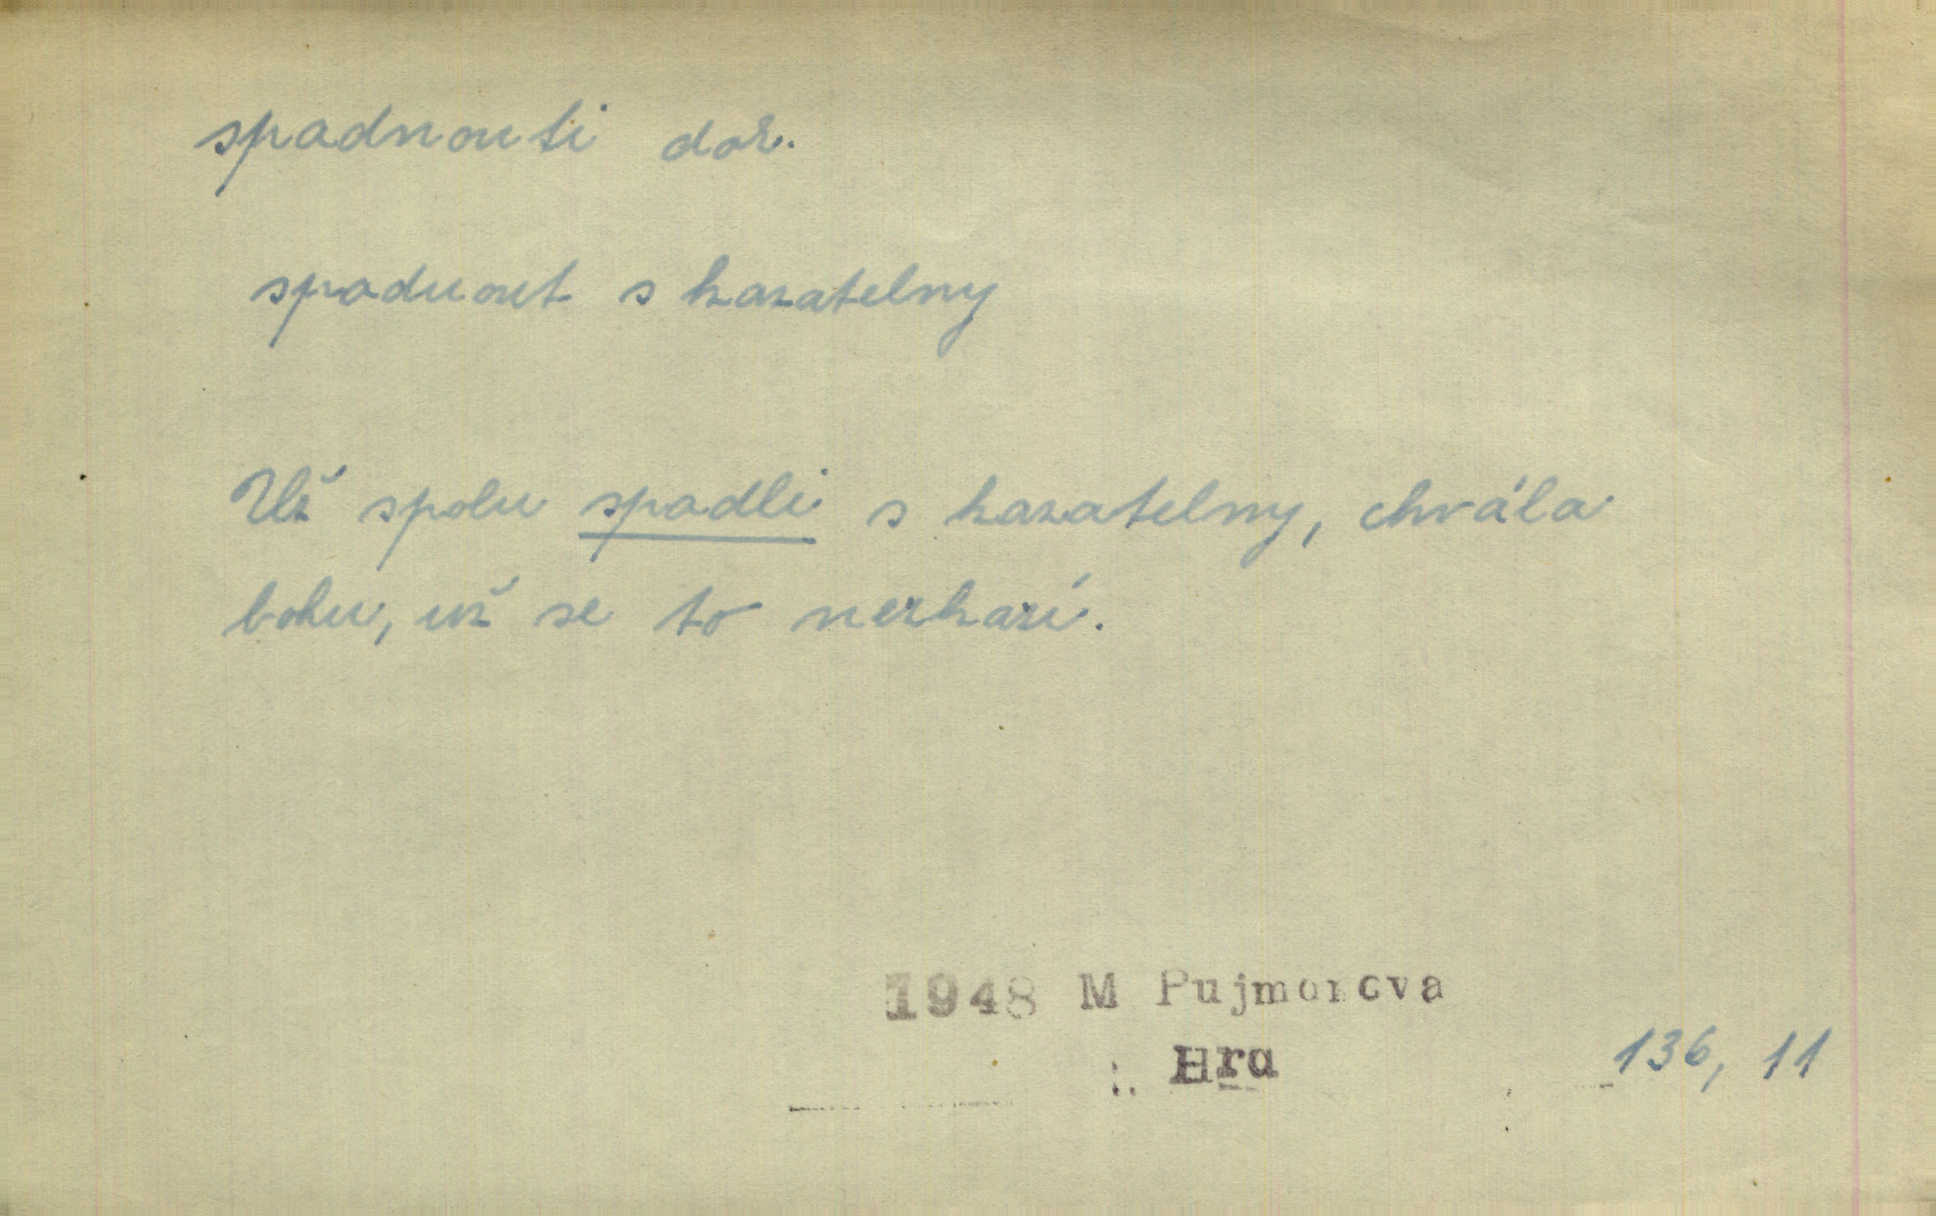 spadnouti dok.
spadnout s kazatelny
Už spolu spadli s kazatelny, chvála
bohu, už se to nezkazí.
1948 M Pujmonova
Hra
136, 11